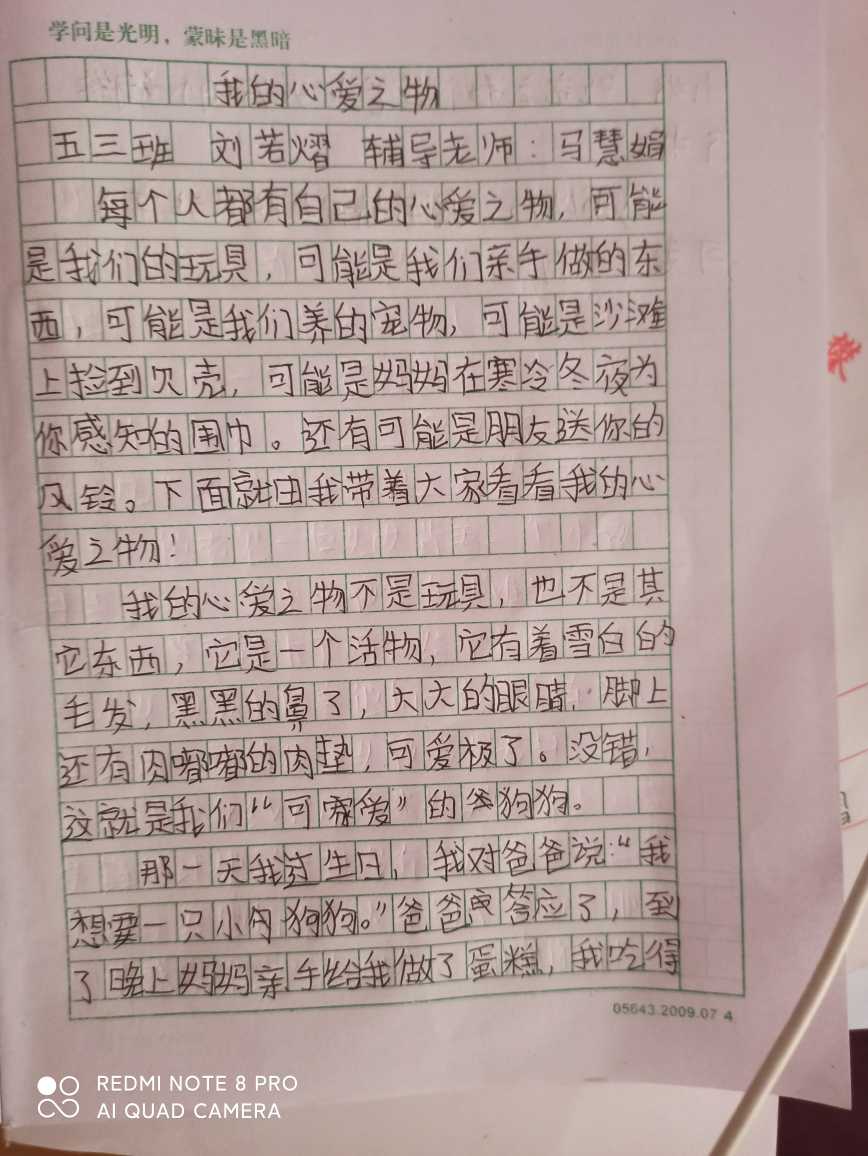 学问是光明，蒙昧是黑暗
我的心爱之物
五三班 刘若熠 辅导老师：马慧娟
每个人都有自己的心爱之物，可能
是我们的玩具，可能是我们亲手做的东
西，可能是我们养的宠物，可能是沙滩
上捡到贝壳，可能是妈妈在寒冷冬夜为
你感知的围巾。还有可能是朋友送你的
风铃。下面就由我带着大家看看我的心
爱之物！
我的心爱之物不是玩具，也不是其
它东西，它是一个活物，它有着雪白的
毛发，黑黑的鼻了，大大的眼睛，脚上
还有肉嘟嘟的肉垫，可爱极了。没错，
这就是我们“可爱”的狗狗。
那一天我过生日，我对爸爸说：“我
想要一只小狗狗。”爸爸答应了，到
了晚上妈妈亲手给我做了蛋糕，我吃得
05643.2009.07 4
REDMI NOTE 8 PRO
AI QUAD CAMERA